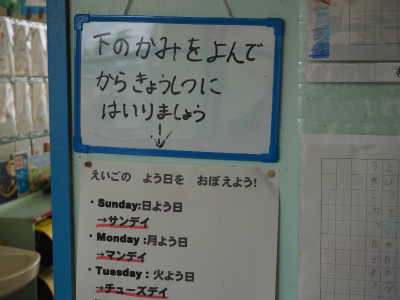 下のかみをよんで
からきょうしつに
はいりましょう
↓
えいごの よう日を おぼえよう!
・Sunday:日よう日
→サンデイ
・Monday:月よう日
→マンデイ
・Tuesday:火よう日
→チューズデイ